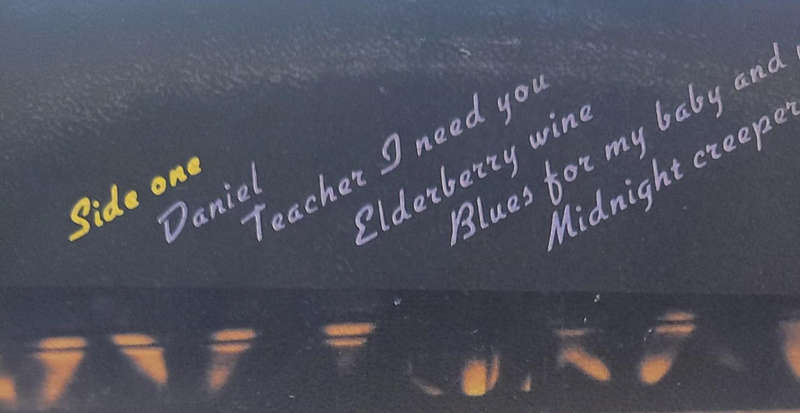 Side one
Daniel
Teacher I need you
Elderberry wine
Blues for my baby and
Midnight creeper